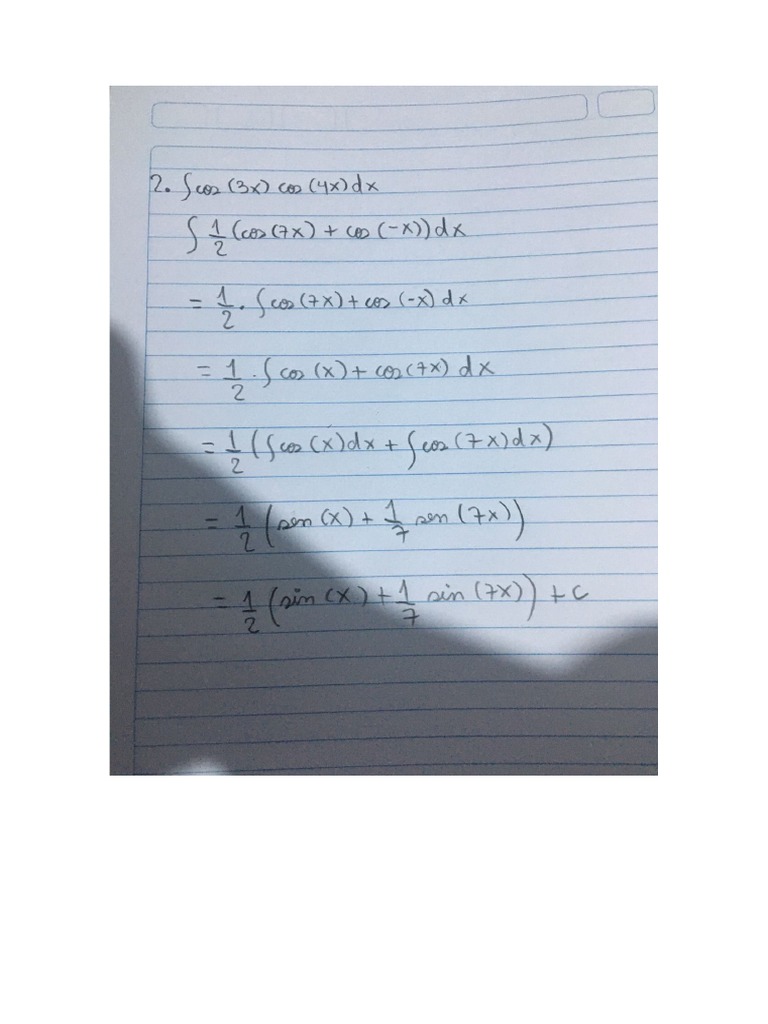 2. ∫cos(3x) cos(4x)dx
∫ 1/2 (cos(7x) + cos(-x))dx
= 1/2 · ∫cos(7x) + cos(-x) dx
= 1/2 · ∫ cos(x) + cos(7x) dx
= 1/2 (∫cos(x)dx + ∫cos(7x)dx)
= 1/2 (sen(x) + 1/7 sen(7x))
= 1/2 (sin(x) + 1/7 sin(7x)) + c